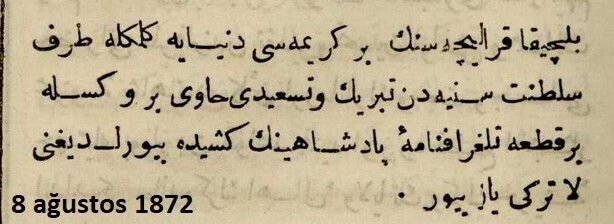 بلچیقا قرالیچه سنك بر کریمه سی دنیایه کلمکله طرف
سلطنت سنیه دن تبریك و تسعیدی حاوی بروکسله
بر قطعه تلغرافنامهٔ پادشاهینك کشیده بیورلدیغنی
لا ترکی یازییور .
8 ağustos 1872